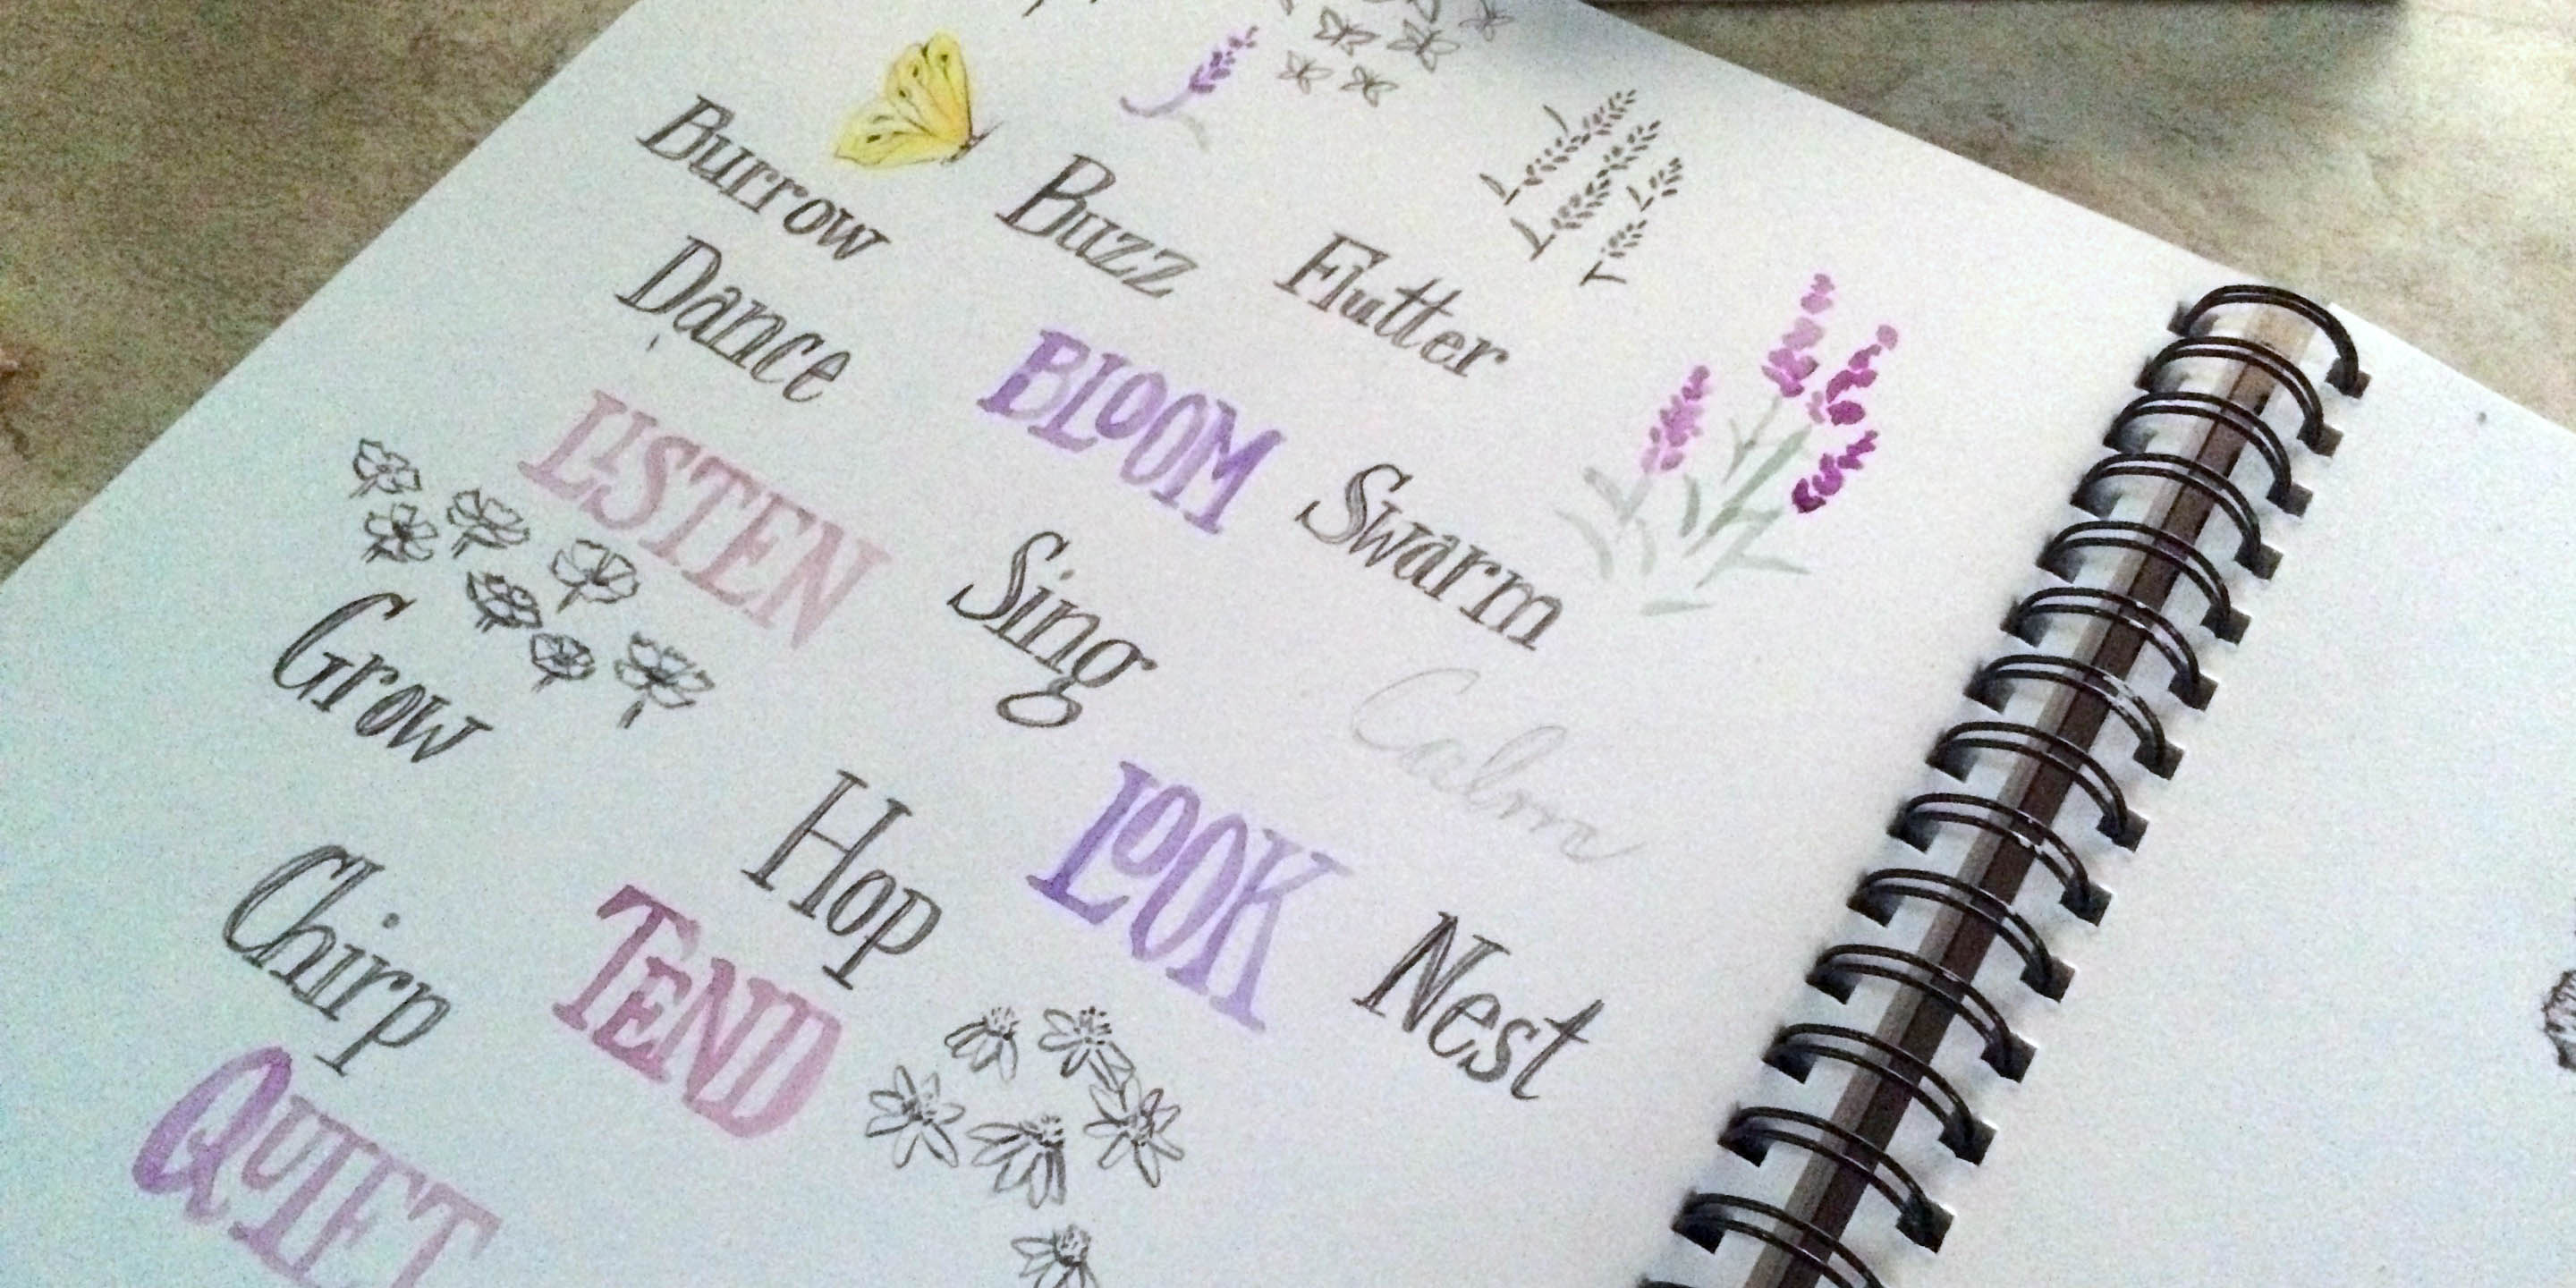 Burrow Buzz Flutter
Dance BLOOM Swarm
LISTEN Sing Calm
Grow Hop LOOK Nest
Chirp TEND
QUIET